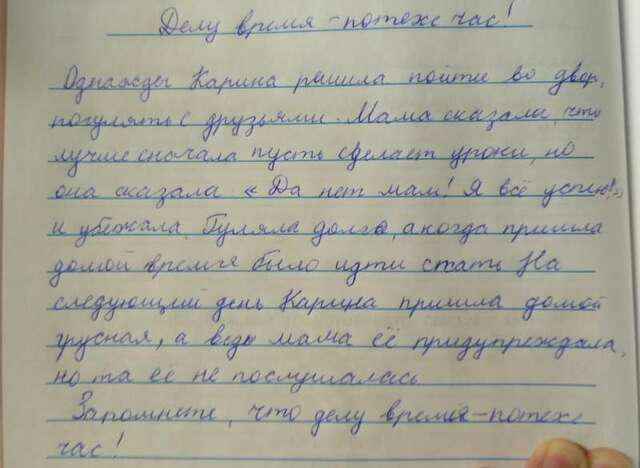 Делу время - потехе час!
Однажды Карина решила пойти во двор,
погулять с друзьями. Мама сказала, что
лучше сначала пусть сделает уроки, но
она сказала «Да нет мам! Я всё успею!»
и убежала. Гуляла долго, а когда пришла
домой время было идти спать На
следующий день Карина пришла домой
грусная, а ведь мама её придупреждала,
но та её не послушалась
Запомните, что делу время - потехе
час!